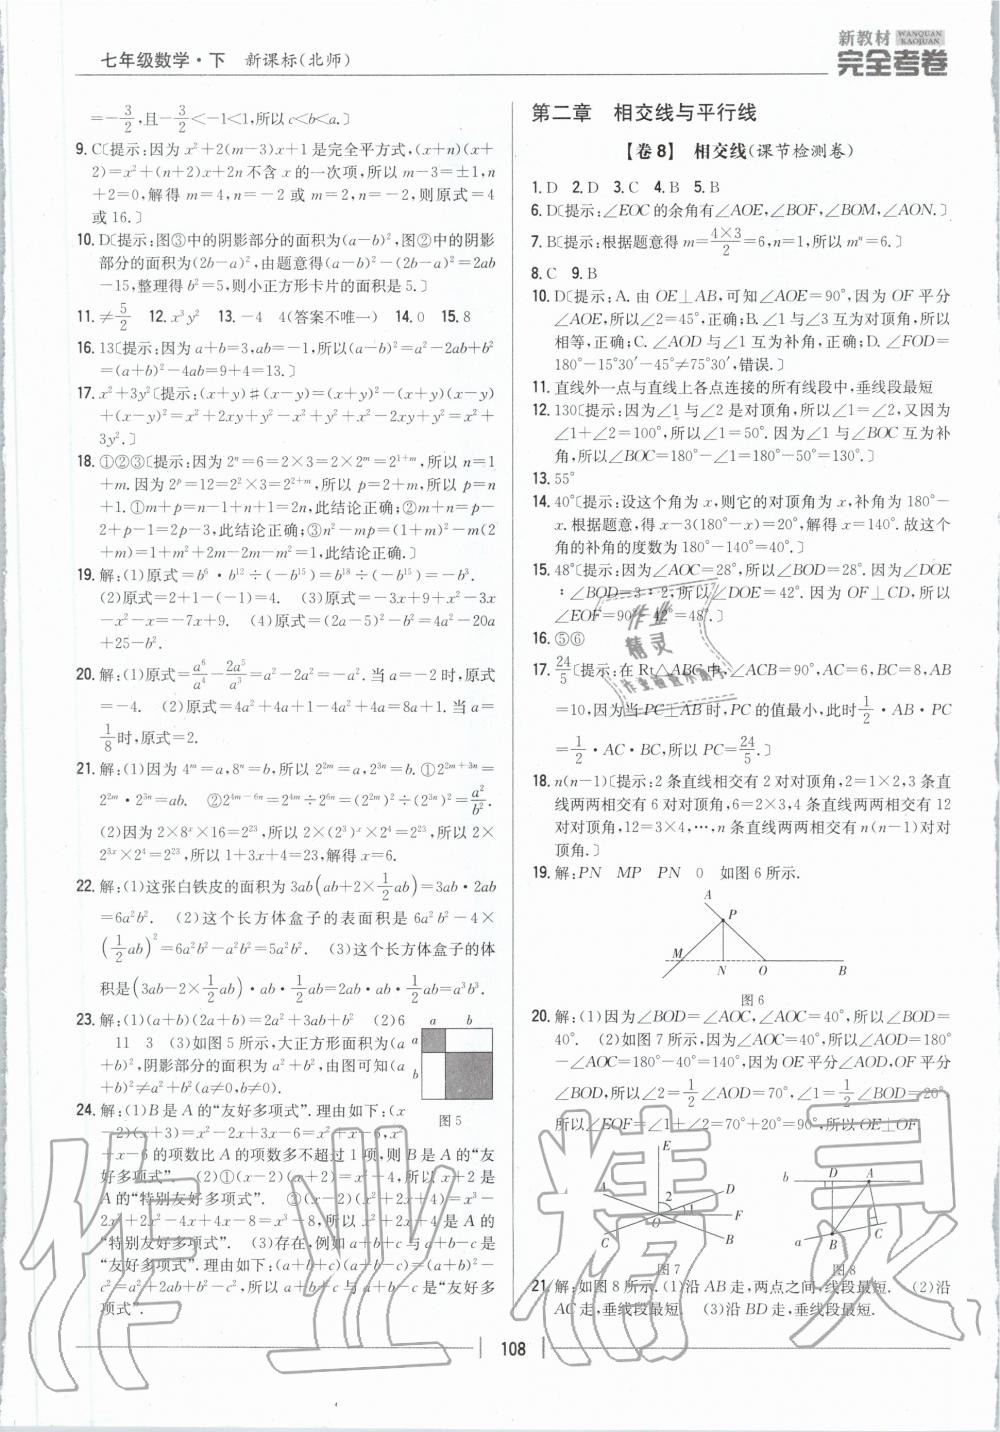 七年级数学·下 新课标(北师)
新教材 WANQUAN KAOJUAN
完全考卷
=-3/2,且-3/2<-1<1,所以c<b<a.〕
9. C〔提示:因为x²+2(m-3)x+1是完全平方式,(x+n)(x+
2)=x²+(n+2)x+2n不含x的一次项,所以m-3=±1,n
+2=0,解得m=4,n=-2或m=2,n=-2,则原式=4
或16.〕
10. D〔提示:图③中的阴影部分的面积为(a-b)²,图②中的阴影
部分的面积为(2b-a)²,由题意得(a-b)²-(2b-a)²=2ab
-15,整理得b²=5,则小正方形卡片的面积是5.〕
11. ≠5/2 12. x³y² 13. -4 4(答案不唯一) 14. 0 15. 8
16. 13〔提示:因为a+b=3,ab=-1,所以(a-b)²=a²-2ab+b²
=(a+b)²-4ab=9+4=13.〕
17. x²+3y²〔提示:(x+y)♯(x-y)=(x+y)²-(x+y)(x-y)
+(x-y)²=x²+2xy+y²-x²+y²+x²-2xy+y²=x²+
3y².〕
18. ①②③〔提示:因为2ⁿ=6=2×3=2×2ᵐ=2¹⁺ᵐ,所以n=1
+m.因为2ᵖ=12=2²×3=2²⁺ᵐ,所以p=2+m,所以p=n
+1.①m+p=n-1+n+1=2n,此结论正确;②m+n=p-
2+p-1=2p-3,此结论正确;③n²-mp=(1+m)²-m(2
+m)=1+m²+2m-2m-m²=1,此结论正确.〕
19. 解:(1)原式=b⁶·b¹²÷(-b¹⁵)=b¹⁸÷(-b¹⁵)=-b³.
(2)原式=2+1-(-1)=4. (3)原式=-3x+9+x²-3x
-x²-x=-7x+9. (4)原式=(2a-5)²-b²=4a²-20a
+25-b².
20. 解:(1)原式=a⁶/a⁴-2a⁵/a³=a²-2a²=-a².当a=-2时,原式
=-4. (2)原式=4a²+4a+1-4a²+4a=8a+1.当a=
1/8时,原式=2.
21. 解:(1)因为4ᵐ=a,8ⁿ=b,所以2²ᵐ=a,2³ⁿ=b.①2²ᵐ⁺³ⁿ=
2²ᵐ·2³ⁿ=ab. ②2⁴ᵐ⁻⁶ⁿ=2⁴ᵐ÷2⁶ⁿ=(2²ᵐ)²÷(2³ⁿ)²=a²/b².
(2)因为2×8ˣ×16=2²³,所以2×(2³)ˣ×2⁴=2²³,所以2×
2³ˣ×2⁴=2²³,所以1+3x+4=23,解得x=6.
22. 解:(1)这张白铁皮的面积为3ab(ab+2×1/2ab)=3ab·2ab
=6a²b². (2)这个长方体盒子的表面积是6a²b²-4×
(1/2ab)²=6a²b²-a²b²=5a²b². (3)这个长方体盒子的体
积是(3ab-2×1/2ab)·ab·1/2ab=2ab·ab·1/2ab=a³b³.
23. 解:(1)(a+b)(2a+b)=2a²+3ab+b² (2)6
11 3 (3)如图5所示,大正方形面积为(a
+b)²,阴影部分的面积为a²+b²,由图可知(a
+b)²≠a²+b²(a≠0,b≠0).
a b
a
b
图5
24. 解:(1)B是A的“友好多项式”.理由如下:(x
-2)(x+3)=x²-2x+3x-6=x²+x-6,x²
+x-6的项数比A的项数多不超过1项,则B是A的“友
好多项式”. (2)①(x-2)(x+2)=x²-4,所以x+2是
A的“特别友好多项式”. ②(x-2)(x²+2x+4)=x³-
2x²+2x²-4x+4x-8=x³-8,所以x²+2x+4是A的
“特别友好多项式”. (3)存在,例如a+b+c与a+b-c是
“友好多项式”.理由如下:(a+b+c)(a+b-c)=(a+b)²-
c²=a²+2ab+b²-c²,所以a+b+c与a+b-c是“友好多
项式”.
第二章 相交线与平行线
【卷8】 相交线(课节检测卷)
1. D 2. D 3. C 4. B 5. B
6. D〔提示:∠EOC的余角有∠AOE,∠BOF,∠BOM,∠AON.〕
7. B〔提示:根据题意得m=4×3/2=6,n=1,所以mⁿ=6.〕
8. C 9. B
10. D〔提示:A.由OE⊥AB,可知∠AOE=90°,因为OF平分
∠AOE,所以∠2=45°,正确;B.∠1与∠3互为对顶角,所以
相等,正确;C.∠AOD与∠1互为补角,正确;D.∠FOD=
180°-15°30′-45°≠75°30′,错误.〕
11. 直线外一点与直线上各点连接的所有线段中,垂线段最短
12. 130〔提示:因为∠1与∠2是对顶角,所以∠1=∠2,又因为
∠1+∠2=100°,所以∠1=50°.因为∠1与∠BOC互为补
角,所以∠BOC=180°-∠1=180°-50°=130°.〕
13. 55°
14. 40°〔提示:设这个角为x,则它的对顶角为x,补角为180°-
x.根据题意,得x-3(180°-x)=20°,解得x=140°.故这个
角的补角的度数为180°-140°=40°.〕
15. 48°〔提示:因为∠AOC=28°,所以∠BOD=28°.因为∠DOE
∶∠BOD=3∶2,所以∠DOE=42°.因为OF⊥CD,所以
∠EOF=90°-42°=48°.〕
16. ⑤⑥
17. 24/5〔提示:在Rt△ABC中,∠ACB=90°,AC=6,BC=8,AB
=10,因为当PC⊥AB时,PC的值最小,此时1/2·AB·PC
=1/2·AC·BC,所以PC=24/5.〕
18. n(n-1)〔提示:2条直线相交有2对对顶角,2=1×2,3条直
线两两相交有6对对顶角,6=2×3,4条直线两两相交有12
对对顶角,12=3×4,…,n条直线两两相交有n(n-1)对对
顶角.〕
19. 解:PN MP PN 0 如图6所示.
A
P
M
N O B
图6
20. 解:(1)因为∠BOD=∠AOC,∠AOC=40°,所以∠BOD=
40°. (2)如图7所示,因为∠AOC=40°,所以∠AOD=180°
-∠AOC=180°-40°=140°,因为OE平分∠AOD,OF平分
∠BOD,所以∠2=1/2∠AOD=70°,∠1=1/2∠BOD=20°,
所以∠EOF=∠1+∠2=70°+20°=90°,所以OE⊥OF.
E
A D
2
1
O F
C B
图7
b D A
a B C
图8
21. 解:如图8所示.(1)沿AB走,两点之间,线段最短. (2)沿
AC走,垂线段最短. (3)沿BD走,垂线段最短.
108
作业精灵
作业
精灵